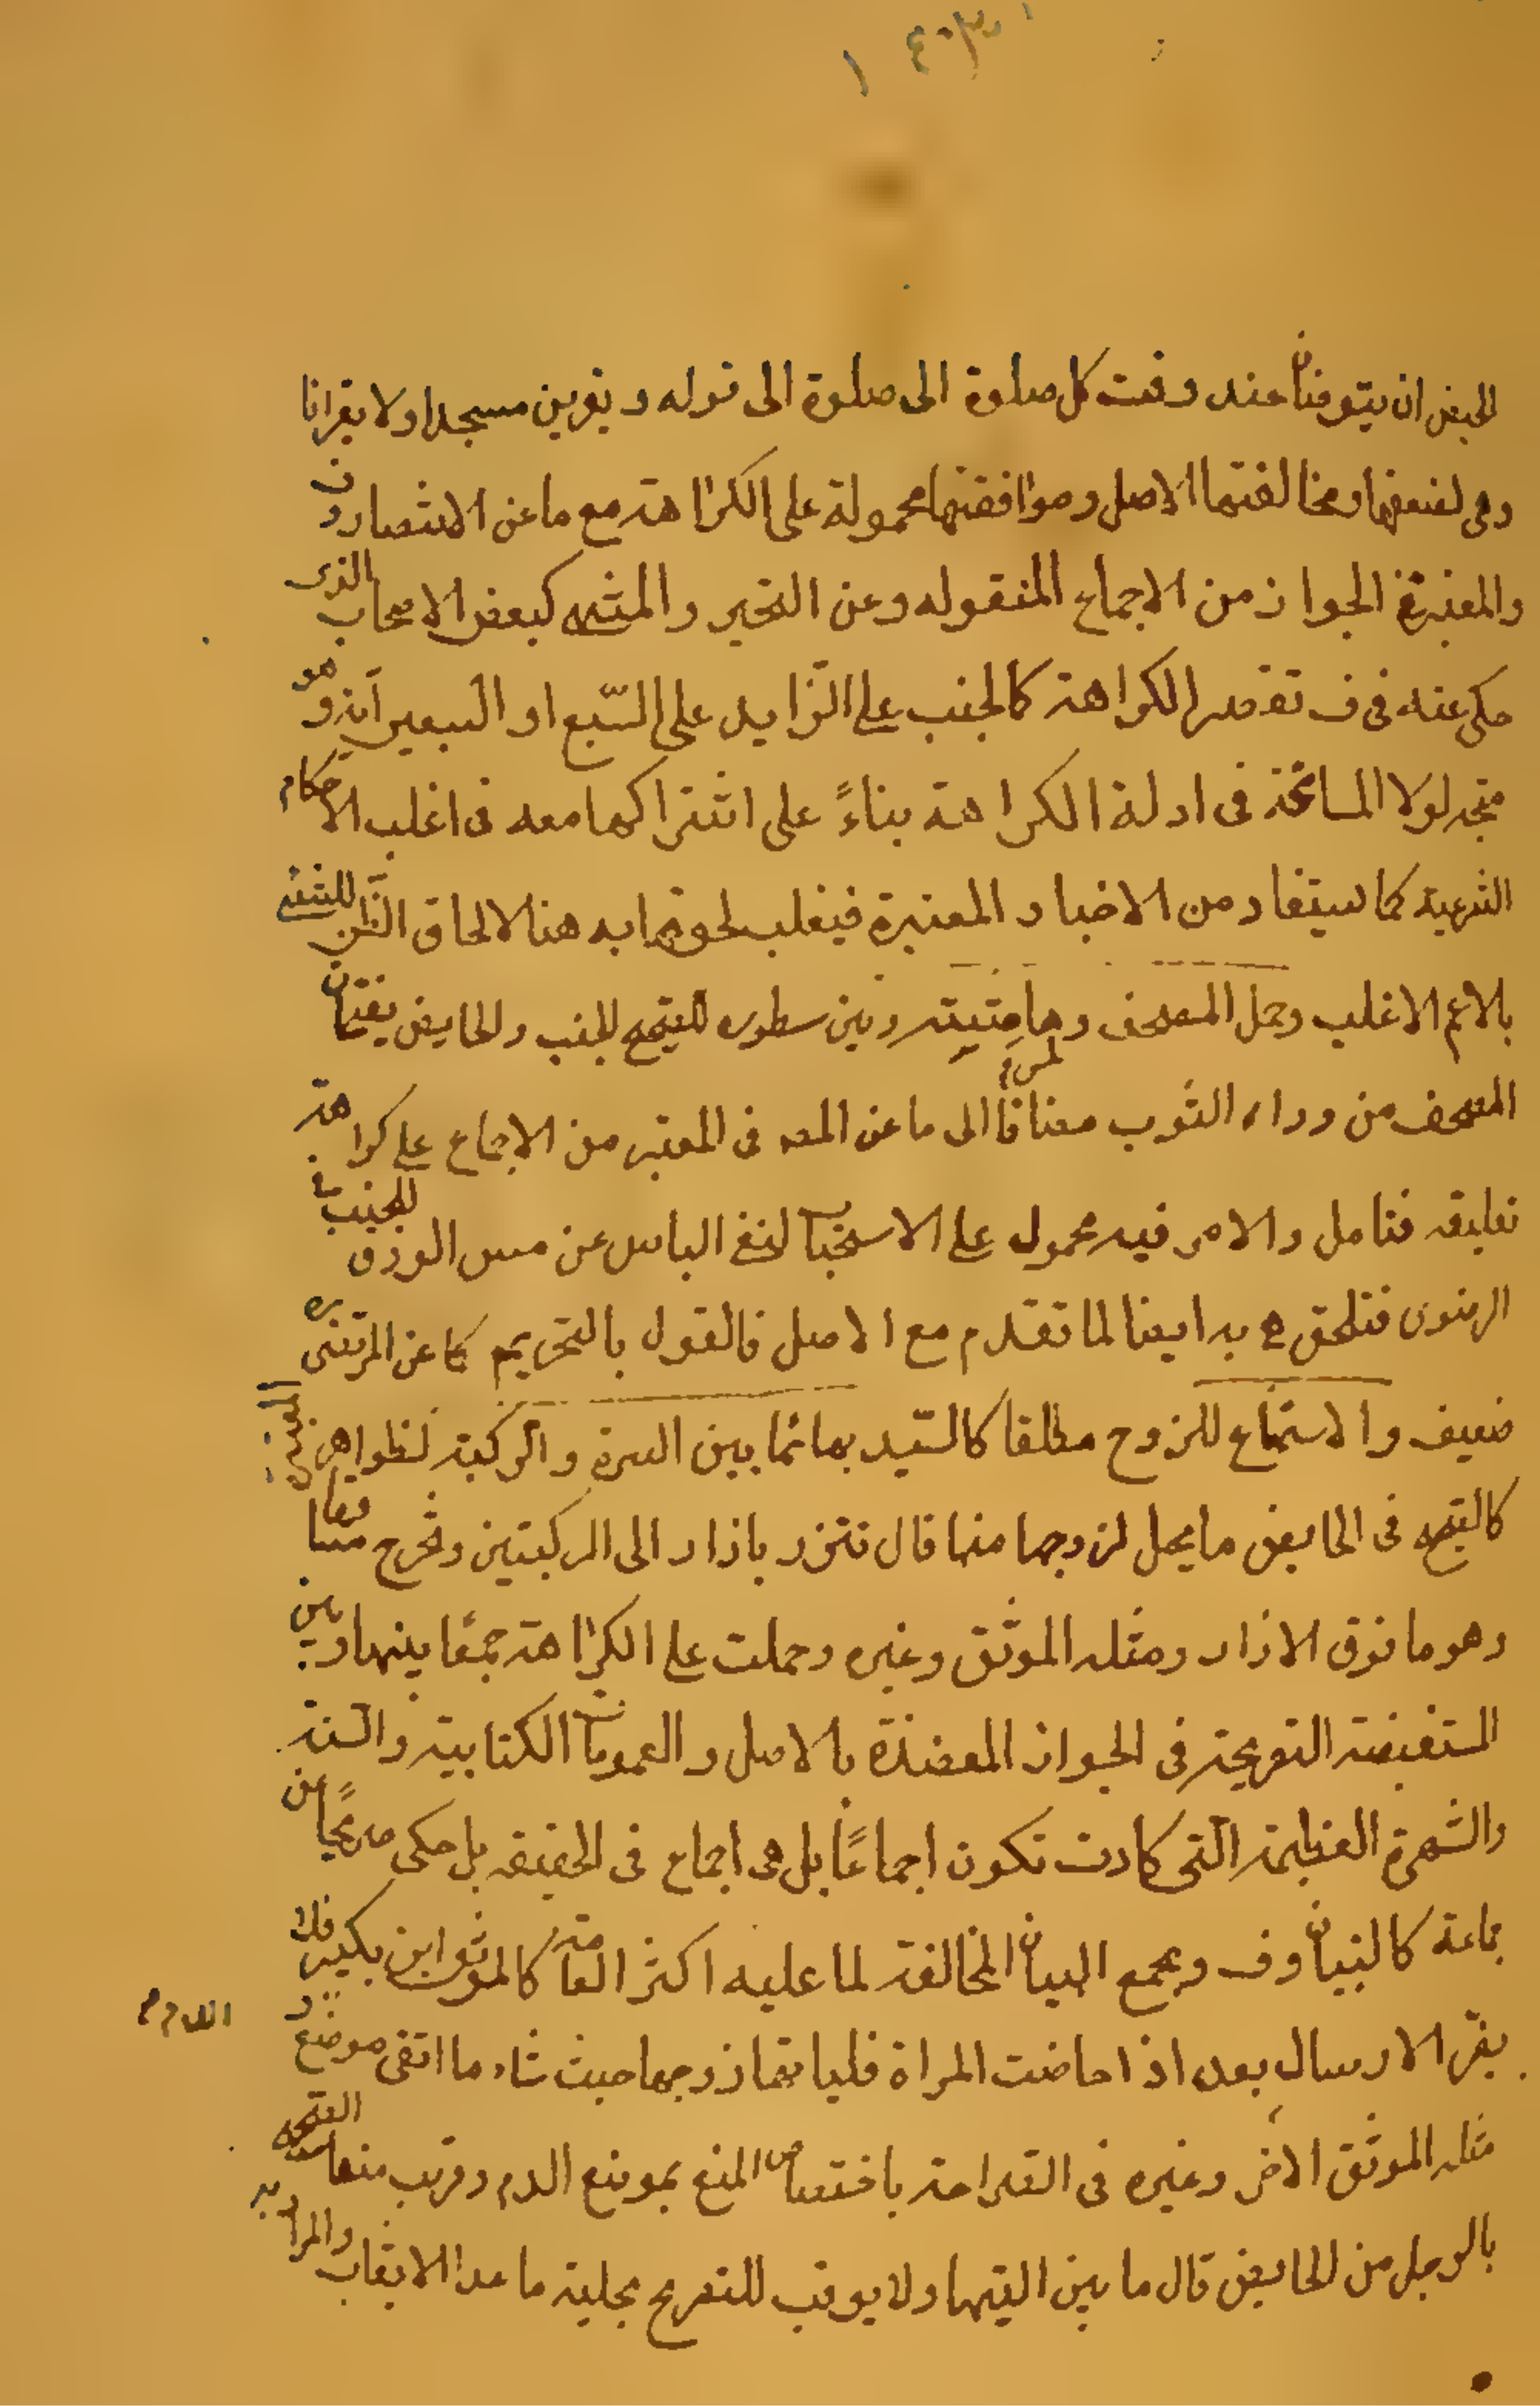 للحيض ان يتوضأن عند وقت كل صلوة الى صلوة الى قوله و يقربن مسجدا ولا يقرانا
وهى لضعفها ومخالفتها الاصل وموافقتها محمولة على الكراهة مع ما عن الانتصار وف
والمعتبر فى الجواز من الاجماع المنقوله وعن التحرير والمنتهى كبعض الاصحاب الذى
حكى عنه فى ف تخصيص الكراهة كالجنب على الزايد على السّبع او السبعين آية وهو
متجه لولا المسامحة فى ادلة الكراهة بناءً على اشتراكهما معه فى اغلب الاحكام
الشرعية كما يستفاد من الاخبار المعتبرة فيغلب لحوقها به هنا لالحاق الظن للشئ
بالاعم الاغلب وحمل المصحف وهامشيته وبين سطوره للصحيح الجنب والحايض يفتحان
المصحف من وراء الثوب مضافا الى ما عن المصه فى المعتبر من الاجماع على كراهة
تعليقه فتامل والامر فيه محمول على الاستحباب لنفى الباس عن مس الورق للجنب فى
الرضوى فتلحق هى به ايضا لما تقدم مع الاصل فالقول بالتحريم كما عن المرتضى ره
ضعيف والاستمتاع للزوج مطلقا كالسّيد بها بما بين السرة والركبة لظواهر المعتبرة
كالصحيح فى الحايض ما يحل لزوجها منها قال تتزر بازار الى الركبتين وتخرج سرتها
وهو ما فوق الازار ومثله الموثق وغيره وحملت على الكراهة جمعًا بينها وبين
المستفيضة الصريحة فى الجواز المعتضدة بالاصل والعمومات الكتابية والسنة
والشهرة العظيمة التى كادت تكون اجماعًا بل هى اجماع فى الحقيقه بل حكى صريحًا عن
جماعة كالتبيان وف ومجمع البيان المخالفة لما عليه اكثر العامة كالموثق ابن بكير فلا
يضر الارسال بعده اذا حاضت المراة فلياتها زوجها حيث شاء ما اتقى موضع
الدم و
مثله الموثق الاخر وغيره فى الصراحة باختصاص المنع بموضع الدم وقريب منها الصحيح
بالرجل من الحايض قال ما بين اليتيها ولا يوقب للتصريح بحلية ما عدا الايقاب والمراد به